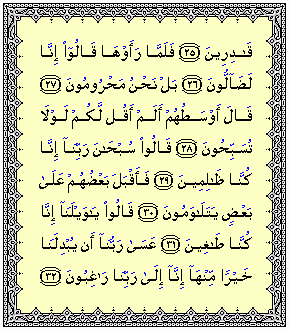 قَـٰدِرِينَ ٢٥ فَلَمَّا رَأَوْهَا قَالُوٓا۟ إِنَّا
لَضَآلُّونَ ٢٦ بَلْ نَحْنُ مَحْرُومُونَ ٢٧
قَالَ أَوْسَطُهُمْ أَلَمْ أَقُل لَّكُمْ لَوْلَا
تُسَبِّحُونَ ٢٨ قَالُوا۟ سُبْحَـٰنَ رَبِّنَآ إِنَّا
كُنَّا ظَـٰلِمِينَ ٢٩ فَأَقْبَلَ بَعْضُهُمْ عَلَىٰ
بَعْضٍ يَتَلَـٰوَمُونَ ٣٠ قَالُوا۟ يَـٰوَيْلَنَآ إِنَّا
كُنَّا طَـٰغِينَ ٣١ عَسَىٰ رَبُّنَآ أَن يُبْدِلَنَا
خَيْرًا مِّنْهَآ إِنَّآ إِلَىٰ رَبِّنَا رَٰغِبُونَ ٣٢